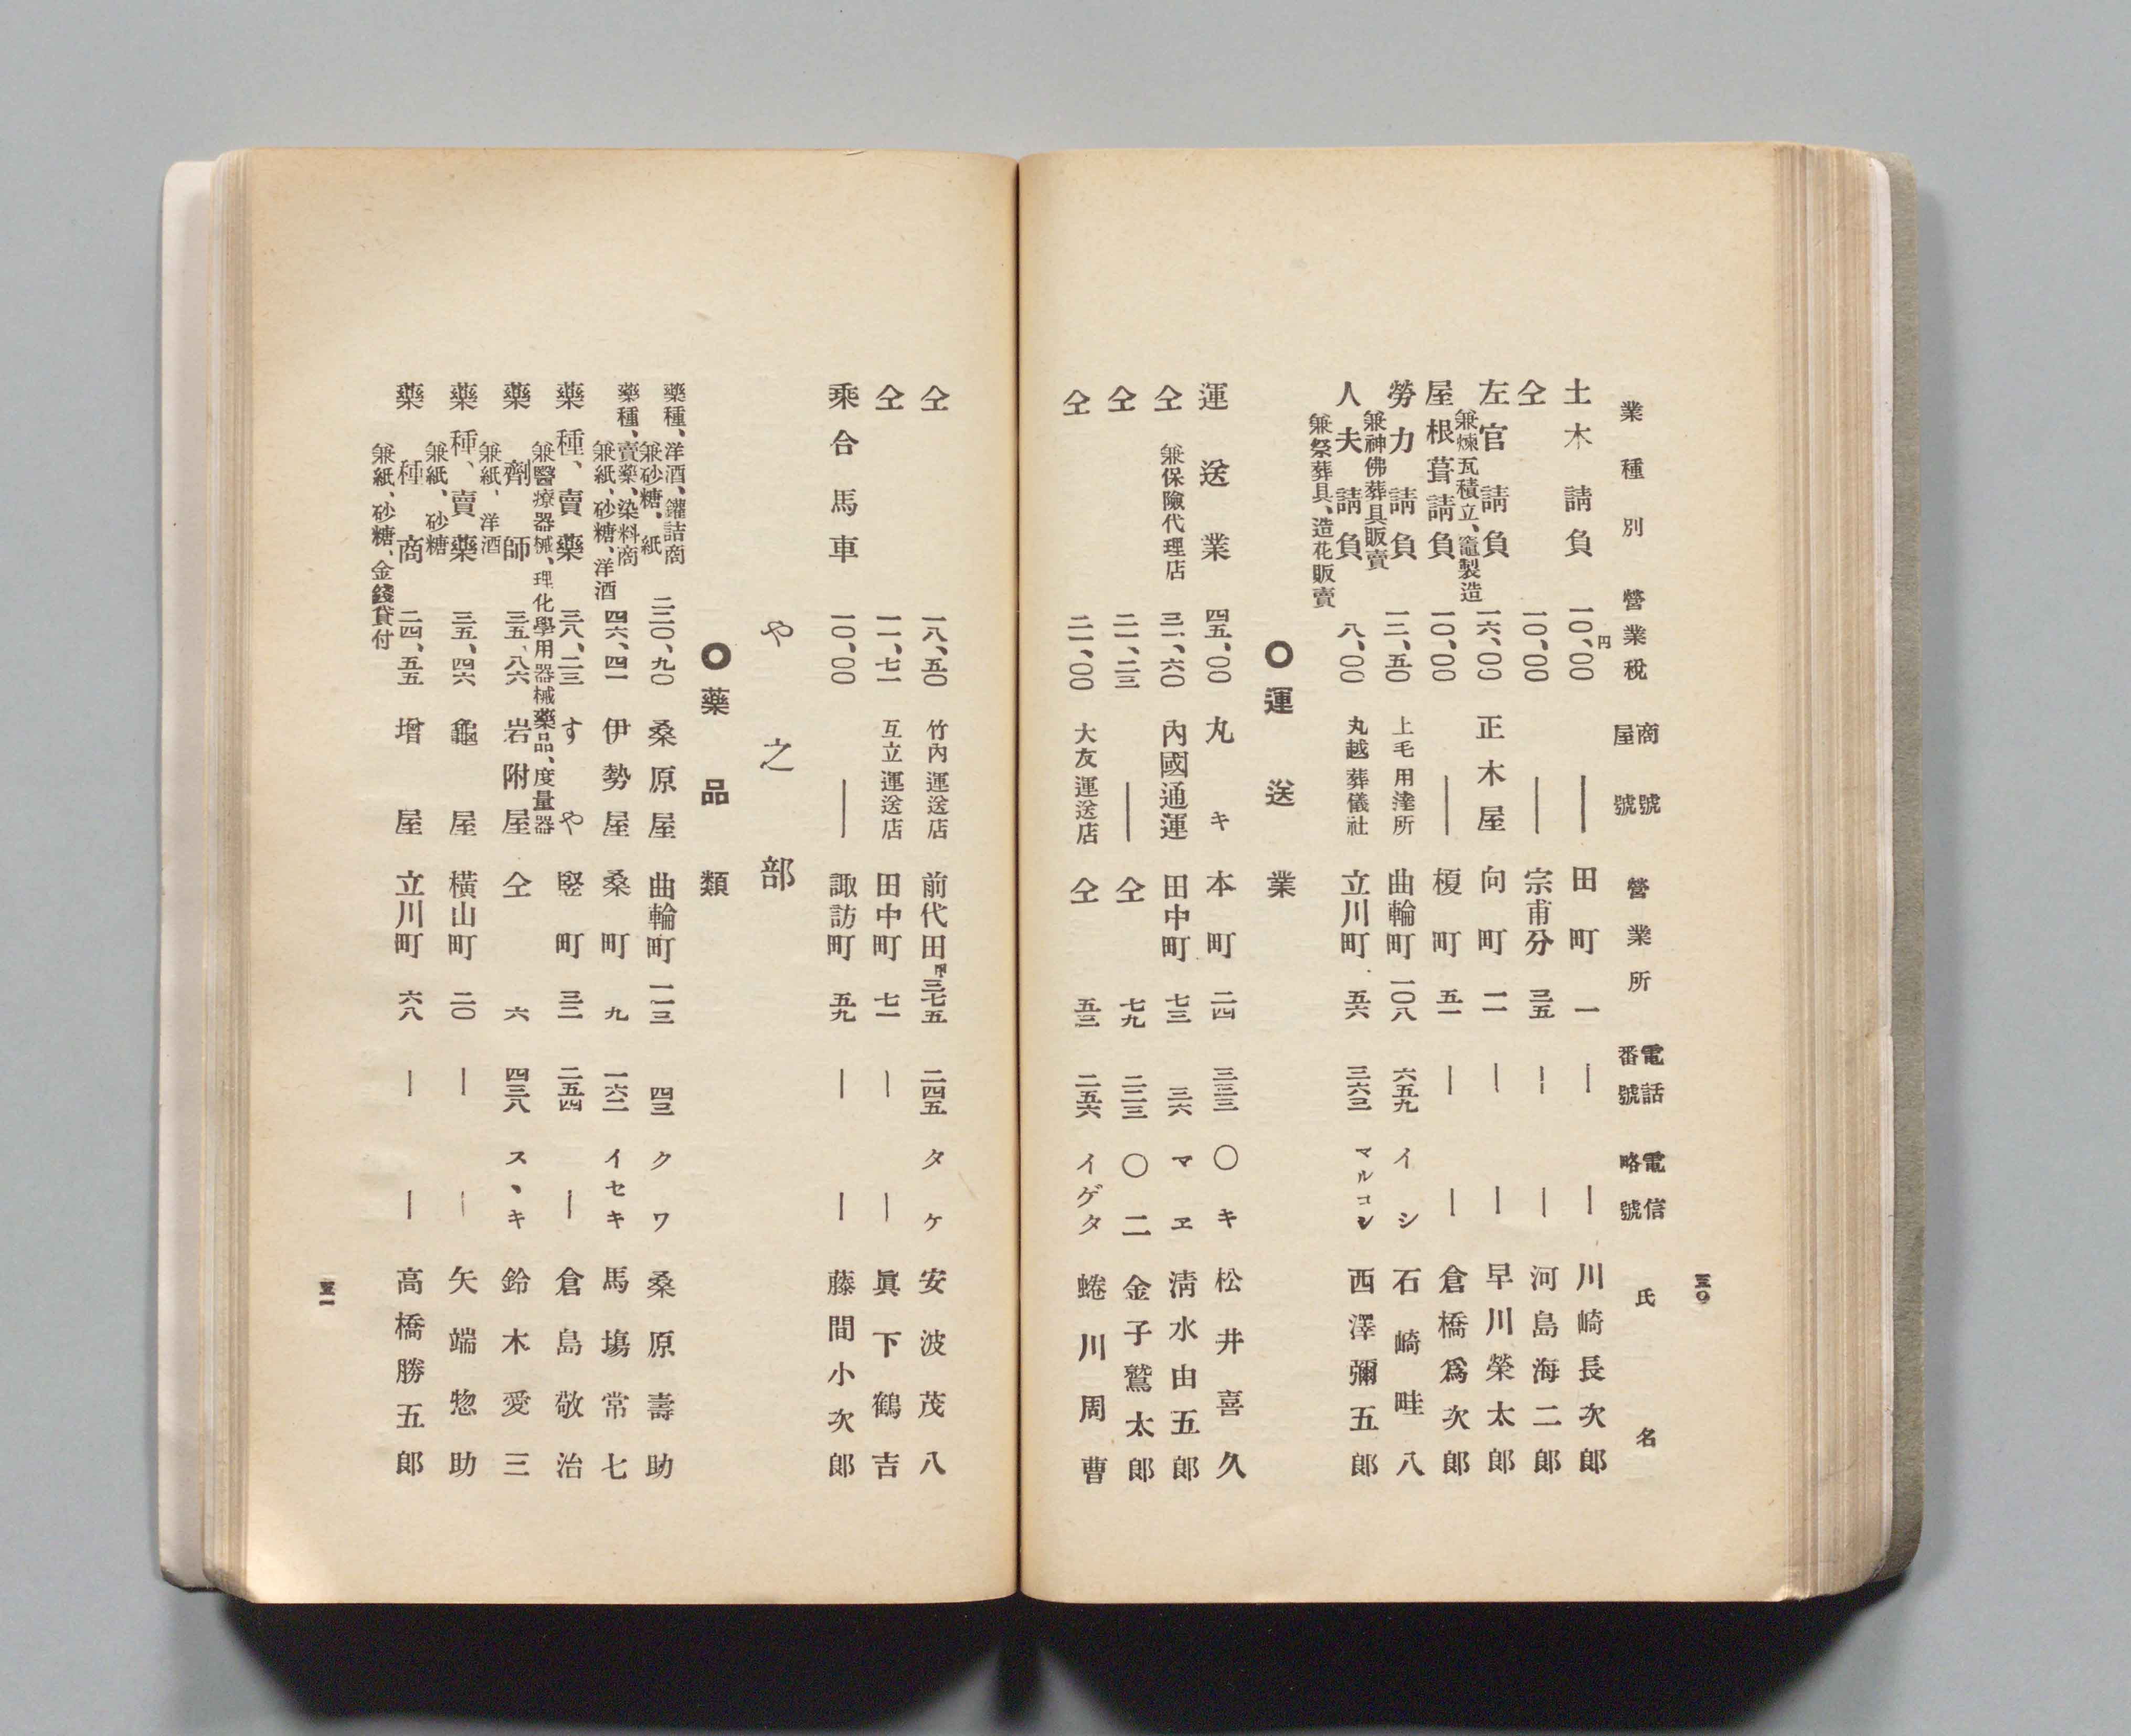 業種別 營業稅 商號屋號 營業所 電話番號 電信略號 氏名
土木請負 一〇、〇〇円 ― 田町 一 ― ― 川崎長次郎
仝 一〇、〇〇 ― 宗甫分 三五 ― ― 河島海二郎
左官請負 一六、〇〇 正木屋 向町 一一 ― ― 早川榮太郎
兼煉瓦積立、竈製造
屋根葺請負 一〇、〇〇 ― 榎町 五一 ― ― 倉橋爲次郎
勞力請負 一三、五〇 上毛用達所 曲輪町 一〇八 六五九 イシ 石崎畦八
兼神佛葬具販賣
人夫請負 八、〇〇 丸越葬儀社 立川町 五六 三六三 マルコシ 西澤彌五郎
兼祭葬具、造花販賣
〇運送業
運送業 四五、〇〇 丸キ 本町 二四 三三三 〇キ 松井喜久
仝 三一、六〇 內國通運 田中町 七三 三六 マヱ 淸水由五郎
兼保險代理店
仝 二一、二三 ― 仝 七九 二二三 〇二 金子鷲太郎
仝 二一、〇〇 大友運送店 仝 五三 二五六 イゲタ 蜷川周曹
五〇
仝 一八、五〇 竹內運送店 前代田町 三七五 二四五 タケ 安波茂八
仝 一一、七一 互立運送店 田中町 七一 ― ― 眞下鶴吉
乘合馬車 一〇、〇〇 ― 諏訪町 五九 ― ― 藤間小次郎
や之部
〇藥品類
藥種、洋酒、鑵詰商 二二〇、九〇 桑原屋 曲輪町 一一三 四三 クワ 桑原壽助
兼砂糖、紙
藥種、賣藥、染料商 四六、四一 伊勢屋 桑町 九 一六二 イセキ 馬塲常七
兼紙、砂糖、洋酒
藥種、賣藥 三八、二三 すや 竪町 三一 二五四 ― 倉島敬治
兼醫療器械、理化學用器械藥品、度量器
藥劑師 三五、八六 岩附屋 仝 六 四三八 スヽキ 鈴木愛三
兼紙、洋酒
藥種、賣藥 三五、四六 龜屋 橫山町 二〇 ― ― 矢端惣助
兼紙、砂糖
藥種商 二四、五五 增屋 立川町 六八 ― ― 高橋勝五郎
兼紙、砂糖、金錢貸付
五一